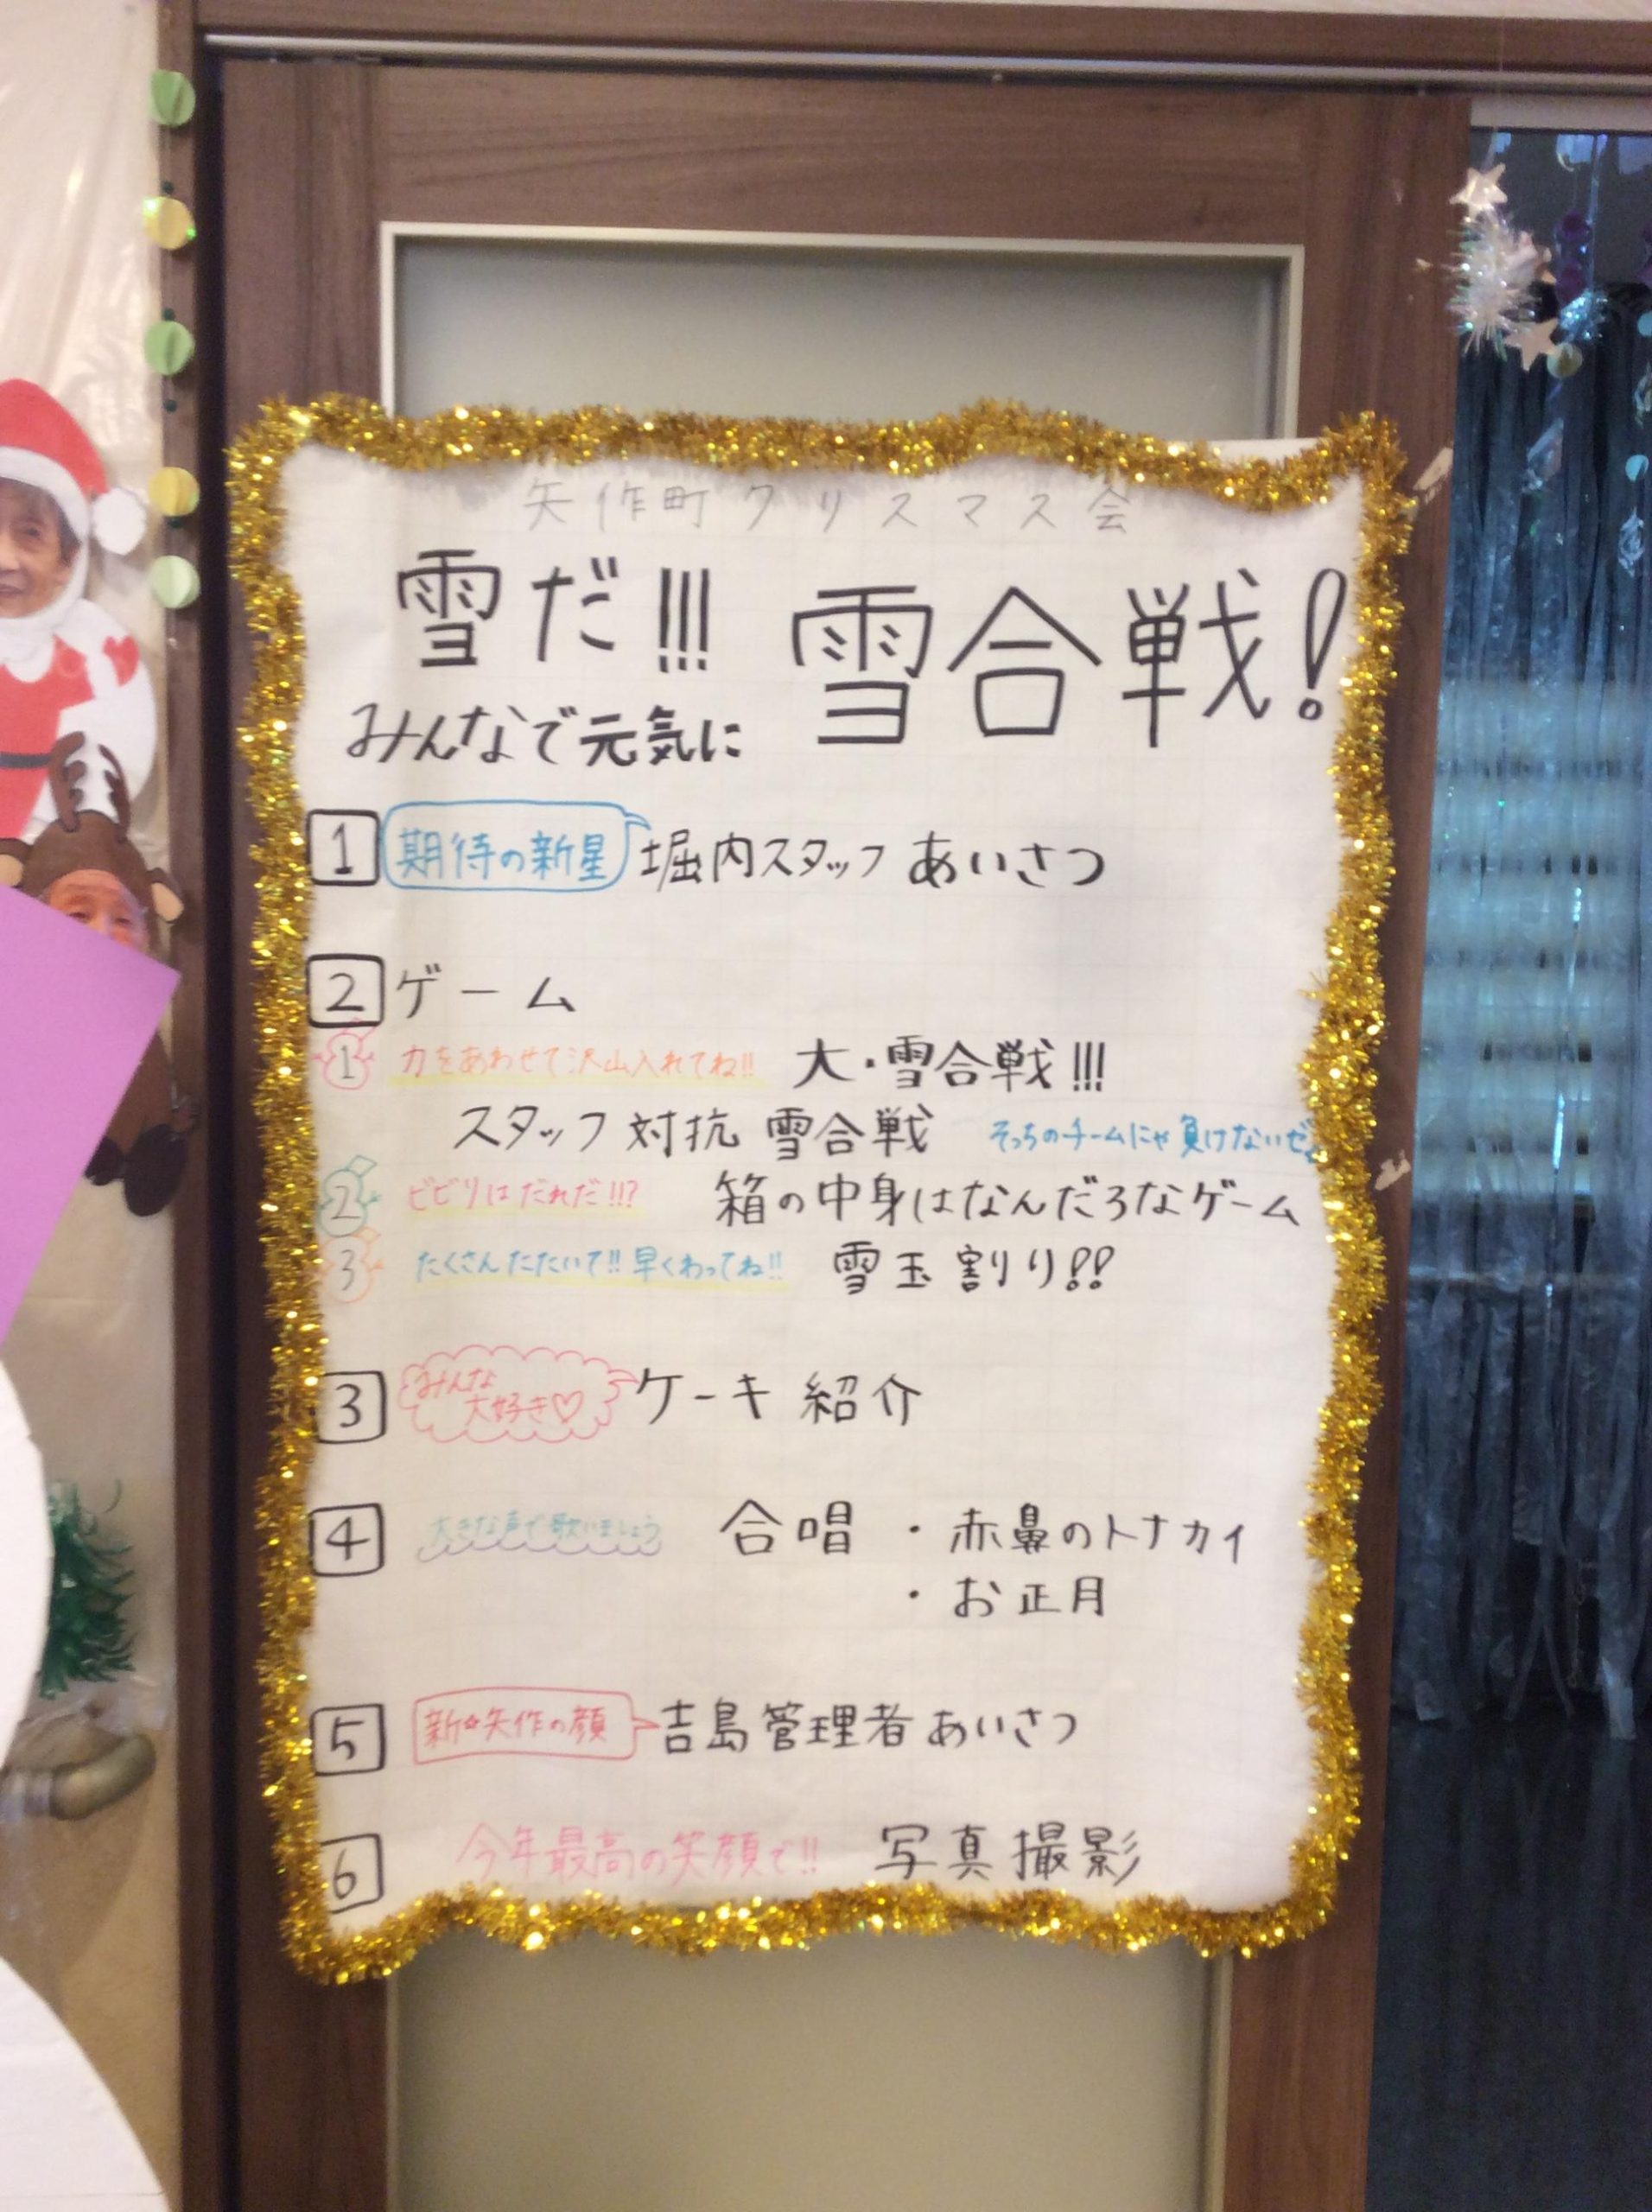 矢作町クリスマス会
雪だ!!!
みんなで元気に 雪合戦!
1 期待の新星 堀内スタッフ あいさつ
2 ゲーム
1 力をあわせて沢山入れてね!! 大・雪合戦!!!
スタッフ対抗 雪合戦 そっちのチームにゃ負けないぜ
2 ビビリはだれだ!!? 箱の中身はなんだろなゲーム
3 たくさんたたいて!! 早くわってね!! 雪玉割りり!!
3 みんな大好き♡ ケーキ紹介
4 大きな声で歌いましょう 合唱 ・赤鼻のトナカイ
・お正月
5 新☆矢作の顔 吉島管理者あいさつ
6 今年最高の笑顔で!! 写真撮影